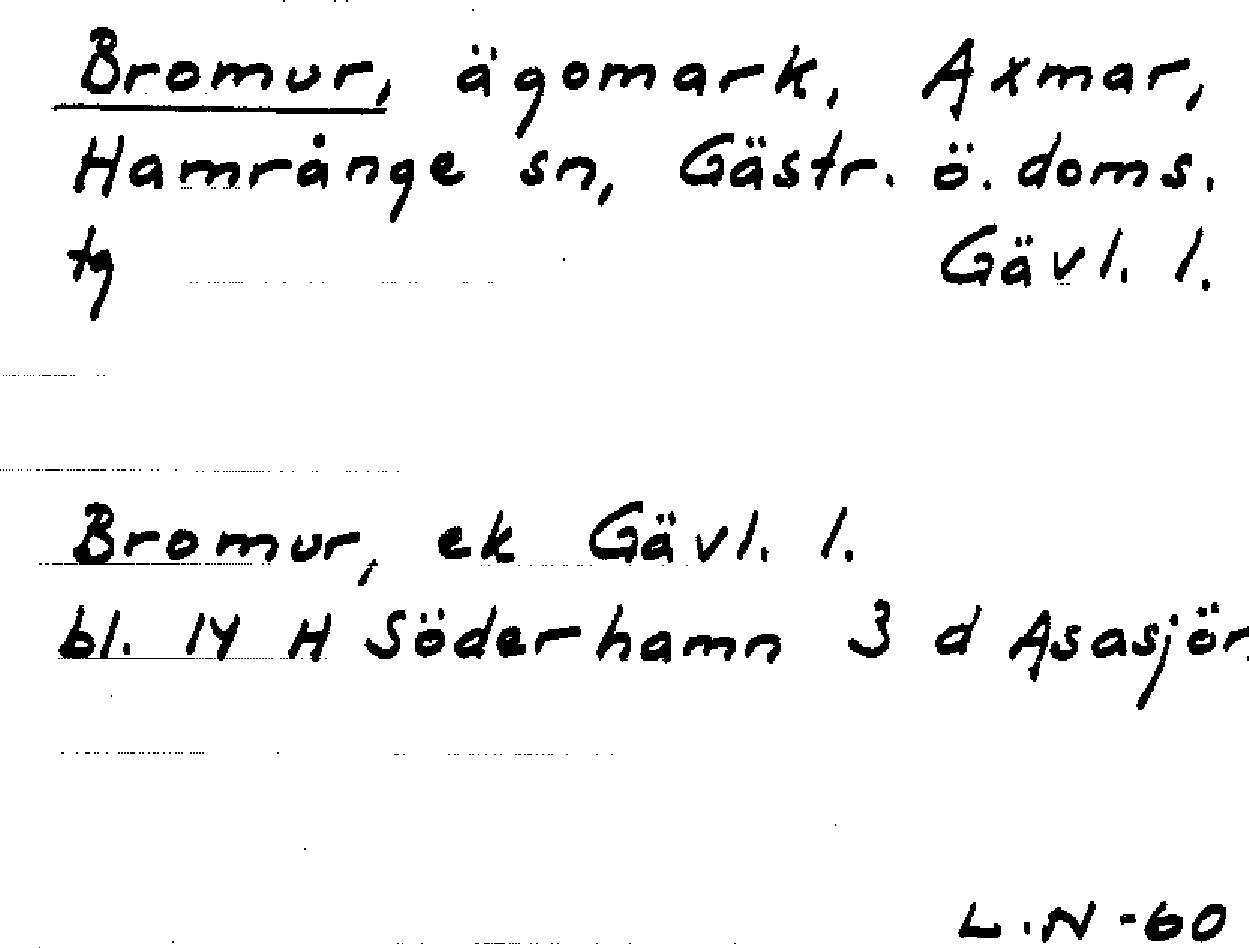 Bromur, ägomark, Axmar,
Hamrånge sn, Gästr. ö. doms.
tg Gävl. l.
Bromur, ek Gävl. l.
bl. 14 H Söderhamn 3 d Asasjön
L.N -60